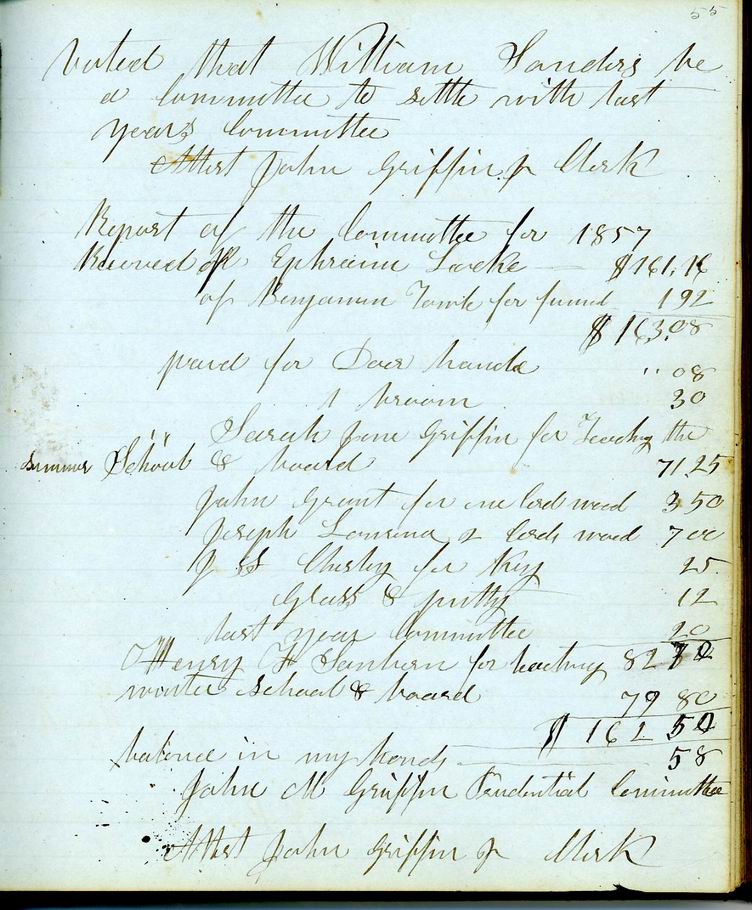 55
Voted that William Sanders be
a Committee to settle with last
years Committee
Attest John Griffin Jr Clerk
Report of the Committee for 1857
Received of Ephraim Locke $161.16
of Benjamin Towle for fund 1 92
$163.08
paid for Door handle " 08
1 broom 30
Sarah Jane Griffin for Teaching the
Summer School & board 71.25
John Grant for one Cord wood 3 50
Joseph 2 Cords wood 7 00
J S Chesley for Key 25
Glass & putty 12
last year Committee 20
82 70
Henry for teaching
winter School & board 79 80
$ 162 50
balance in my hands 58
John M Griffin Prudential Committee
Attest John Griffin Jr Clerk